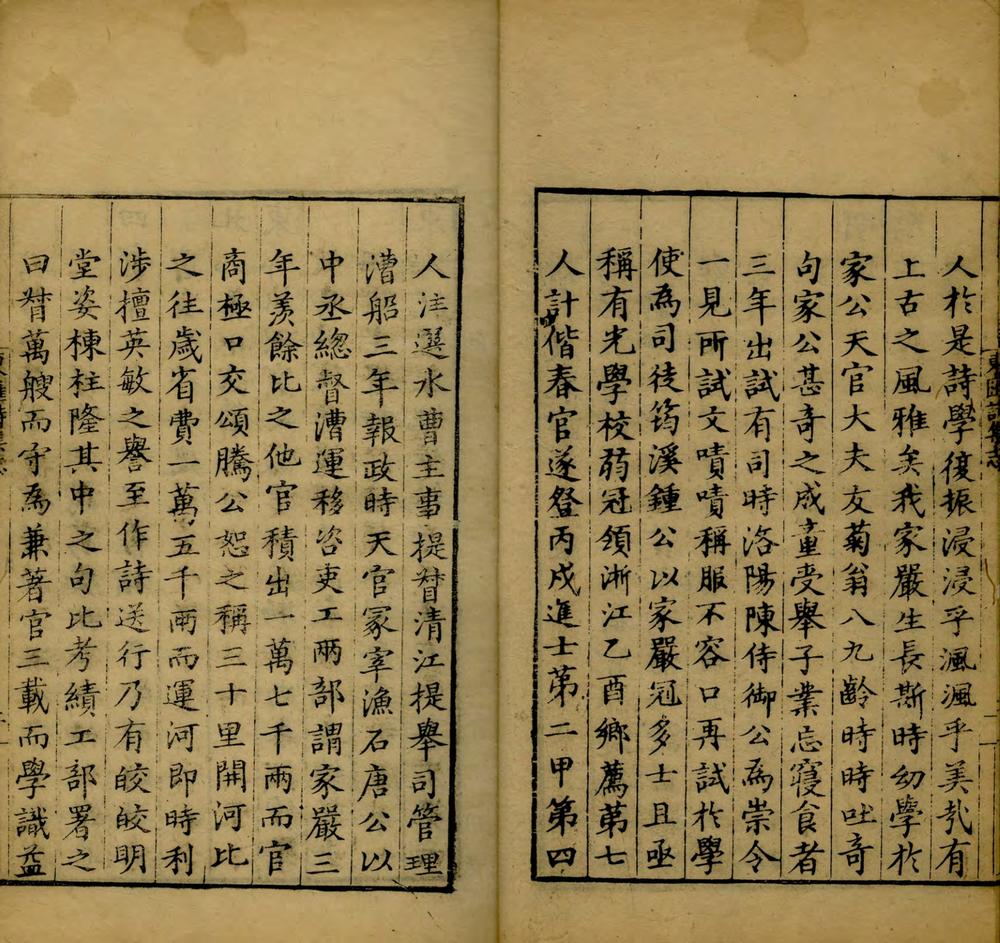 人於是詩學復振浸浸乎渢渢乎美哉有
上古之風雅矣我家嚴生長斯時幼學於
家公天官大夫友菊翁八九齡時時吐奇
句家公甚奇之成童受舉子業忘寢食者
三年出試有司時洛陽陳侍御公為崇令
一見所試文嘖嘖稱服不容口再試於學
使為司徒筠溪鍾公以家嚴冠多士且亟
稱有光學校弱冠領浙江乙酉鄉薦第七
人計偕春官遂登丙戌進士第二甲第四
人注選水曹主事提督清江提舉司管理
漕船三年報政時天官冢宰漁石唐公以
中丞總督漕運移咨吏工兩部謂家嚴三
年羨餘比之他官積出一萬七千兩而官
商極口交頌騰公恕之稱三十里開河比
之往歲省費一萬五千兩而運河即時利
涉擅英敏之譽至作詩送行乃有皎皎明
堂姿棟柱隆其中之句比考績工部署之
曰督萬艘而守為兼著官三載而學識益